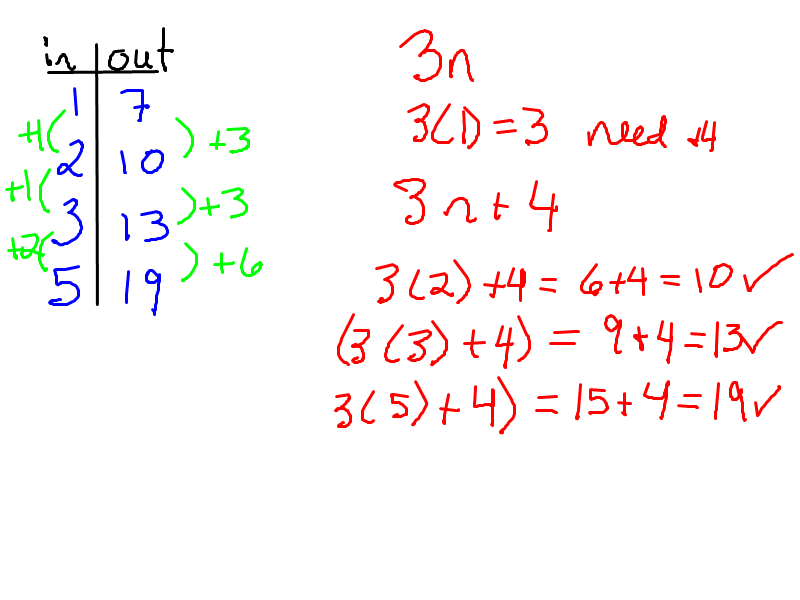 in out
1 7
+1( ) +3
2 10
+1( ) +3
3 13
+2( ) +6
5 19
3n
3(1) = 3 need +4
3n + 4
3(2) + 4 = 6 + 4 = 10 ✓
(3(3) + 4) = 9 + 4 = 13 ✓
3(5) + 4) = 15 + 4 = 19 ✓